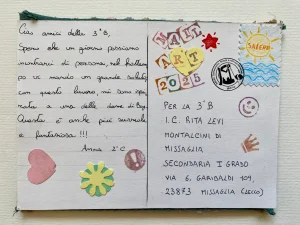 Ciao amici della 3ªB,
Spero che un giorno possiamo
incontrarci di persona, nel frattempo
vi mando un grande saluto
con questo lavoro, mi sono ispi
rata a una delle dame di
Questa è anche più surreale
e fantasiosa !!!
Anna 2ªC
MAIL
ART
2025
SALERNO
PER LA 3ªB
I.C. RITA LEVI
MONTALCINI DI
MISSAGLIA
SECONDARIA I GRADO
VIA G. GARIBALDI 109,
23873 MISSAGLIA (LECCO)